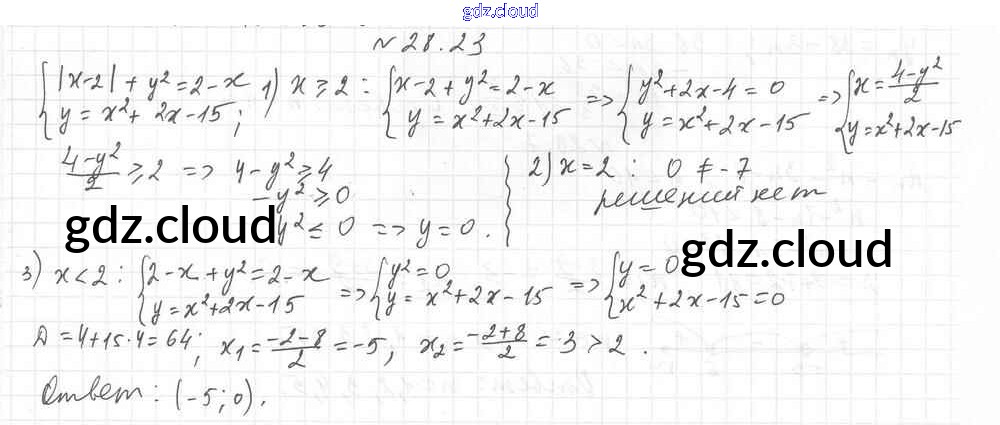 gdz.cloud
№28.23
{|x-2| + y² = 2-x
{y = x² + 2x - 15;
1) x ≥ 2 : {x-2+y² = 2-x
{y = x²+2x-15
=> {y²+2x-4 = 0
{y = x²+2x-15
=> {x = (4-y²)/2
{y = x²+2x-15
(4-y²)/2 ≥ 2 => 4-y² ≥ 4
-y² ≥ 0
y² ≤ 0 => y = 0.
2) x = 2 : 0 ≠ -7
решений нет
gdz.cloud
gdz.cloud
3) x < 2 : {2-x+y² = 2-x
{y = x²+2x-15
=> {y² = 0
{y = x²+2x-15
=> {y = 0
{x²+2x-15 = 0
D = 4+15·4 = 64; x₁ = (-2-8)/2 = -5; x₂ = (-2+8)/2 = 3 > 2.
Ответ: (-5; 0).